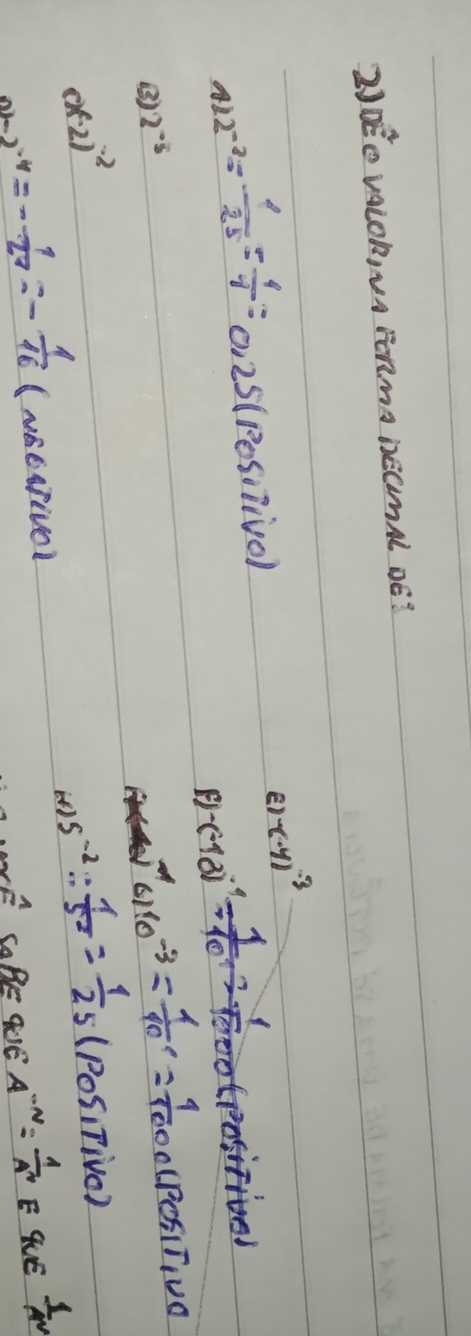 2) DÊ O VALOR, NA FORMA DECIMAL DE:
A) 2^-2 = 1/25 = 1/4 = 0,25 (POSITIVO)
B) 2^-3
C) (-2)^-2
D) -2^-4 = - 1/24 = - 1/16 (NEGATIVO)
E) -(-4)^-3
F) -(-10)^-4
G) 10^-3 = 1/10 = 1/1000 (POSITIVO
H) 5^-2 = 1/52 = 1/25 (POSITIVO)
SABE QUE A^-N = 1/A^N E QUE 1/A^N